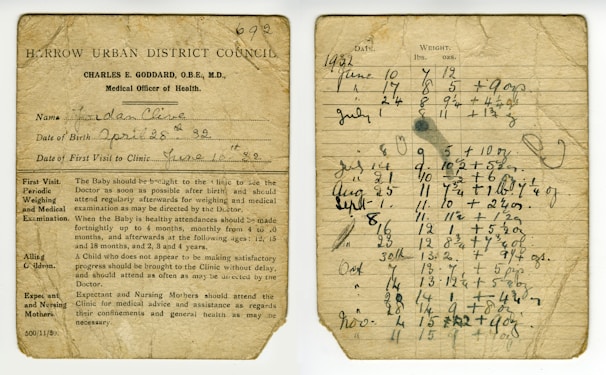 692
HARROW URBAN DISTRICT COUNCIL
CHARLES E. GODDARD, O.B.E., M.D.,
Medical Officer of Health.
Name Jordan Clive
Date of Birth April 28th 32
Date of First Visit to Clinic June 10th 32
First Visit. The Baby should be brought to the Clinic to see the
Periodic Doctor as soon as possible after birth and should
Weighing attend regularly afterwards for weighing and medical
and Medical examination as may be directed by the Doctor.
Examination. When the Baby is healthy attendances should be made
fortnightly up to 4 months, monthly from 4 to 10
months, and afterwards at the following ages: 12, 15
and 18 months, and 2, 3 and 4 years.
Ailing A Child who does not appear to be making satisfactory
Children. progress should be brought to the Clinic without delay,
and should attend as often as may be directed by the
Doctor.
Expectant Expectant and Nursing Mothers should attend the
and Nursing Clinic for medical advice and assistance as regards
Mothers. their confinements and general health as may be
necessary.
500/11/30.
DATE. WEIGHT.
lbs. ozs.
1932
June 10 7 12
" 17 8 5 + 9 ozs
" 24 8 9½ + 4½
July 1 8 11 +
" 8 9 5 + 10 oz
July 14 9 10½ + 5½
" 21 10 + 6
Aug 25 11 7½
Sept 1. 11. 10 + 2½ oz
8 11. 11½ + 1½
" 16 12 1 + 5
" 23 12 8¾ + 7¾ oz
30th 13. 2. + 9¼ ozs.
Oct 7 13. 7. + 5
" 14 13. 12 + 5
14 1
" 28 14 9 + 8 oz
Nov 4 15 + 9 oz
" 11 15 9